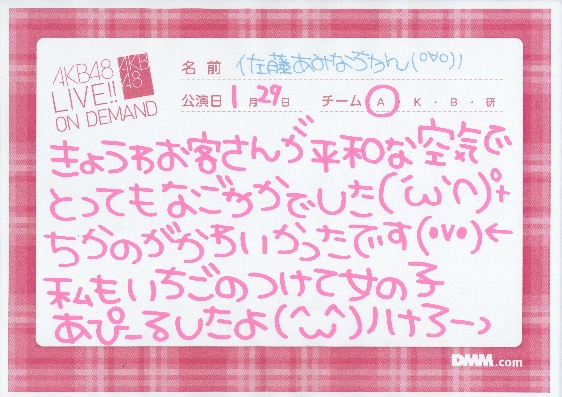 AKB48
LIVE!!
ON DEMAND
AKB
48
名前 (佐藤あみなちゃん(°∀°))
公演日 1月29日 チーム A・K・B・研
きょうわお客さんが平和な空気で
とってもなごやかでした(´ω`∩)°+
ちかのがかわいかったです(°v°)←
私もいちごのつけて女の子
あぴーるしたよ(^ω^)ハけろーっ
DMM.com